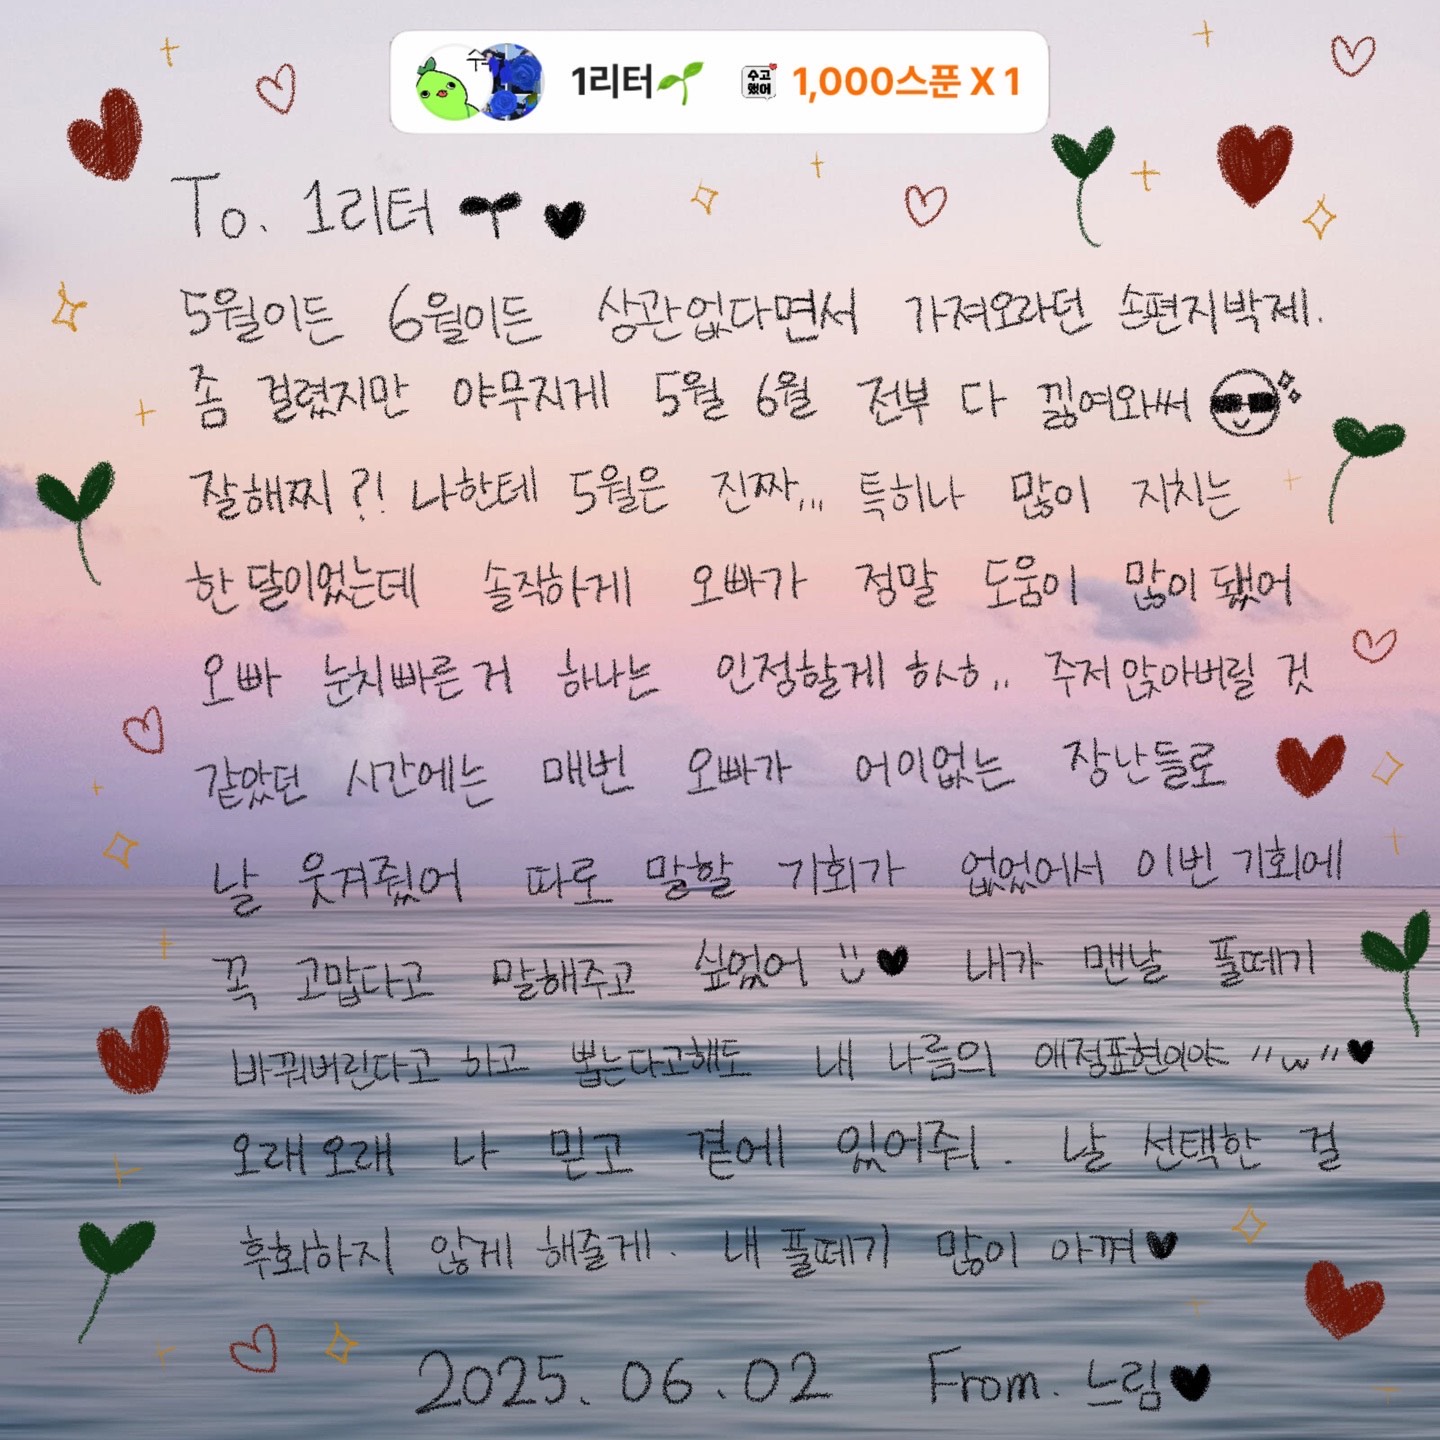 수고
1리터🌱 수고했어 1,000스푼 X 1
To. 1리터 🌱 ♥
5월이든 6월이든 상관없다면서 가져오라던 손편지박제.
좀 걸렸지만 야무지게 5월 6월 전부 다 낋여와써 😎
잘해찌?! 나한테 5월은 진짜,,, 특히나 많이 지치는
한 달이었는데 솔직하게 오빠가 정말 도움이 많이 됐어
오빠 눈치빠른 거 하나는 인정할게 하ㅅ하,, 주저 앉아버릴 것
같았던 시간에는 매번 오빠가 어이없는 장난들로
날 웃겨줬어 따로 말할 기회가 없었어서 이번 기회에
꼭 고맙다고 말해주고 싶었어 :) ♥ 내가 맨날 풀떼기
바꿔버린다고 하고 뽑는다고해도 내 나름의 애정표현이야 〃ω〃♥
오래오래 나 믿고 곁에 있어줘. 날 선택한 걸
후회하지 않게 해줄게. 내 풀떼기 많이 아껴♥
2025.06.02 From. 느림♥